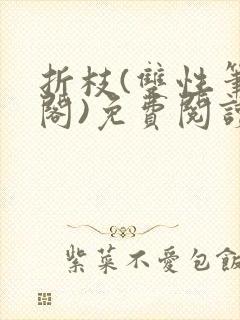 折枝(雙性筆
閣)免費閱讀
紫菜不愛包飯